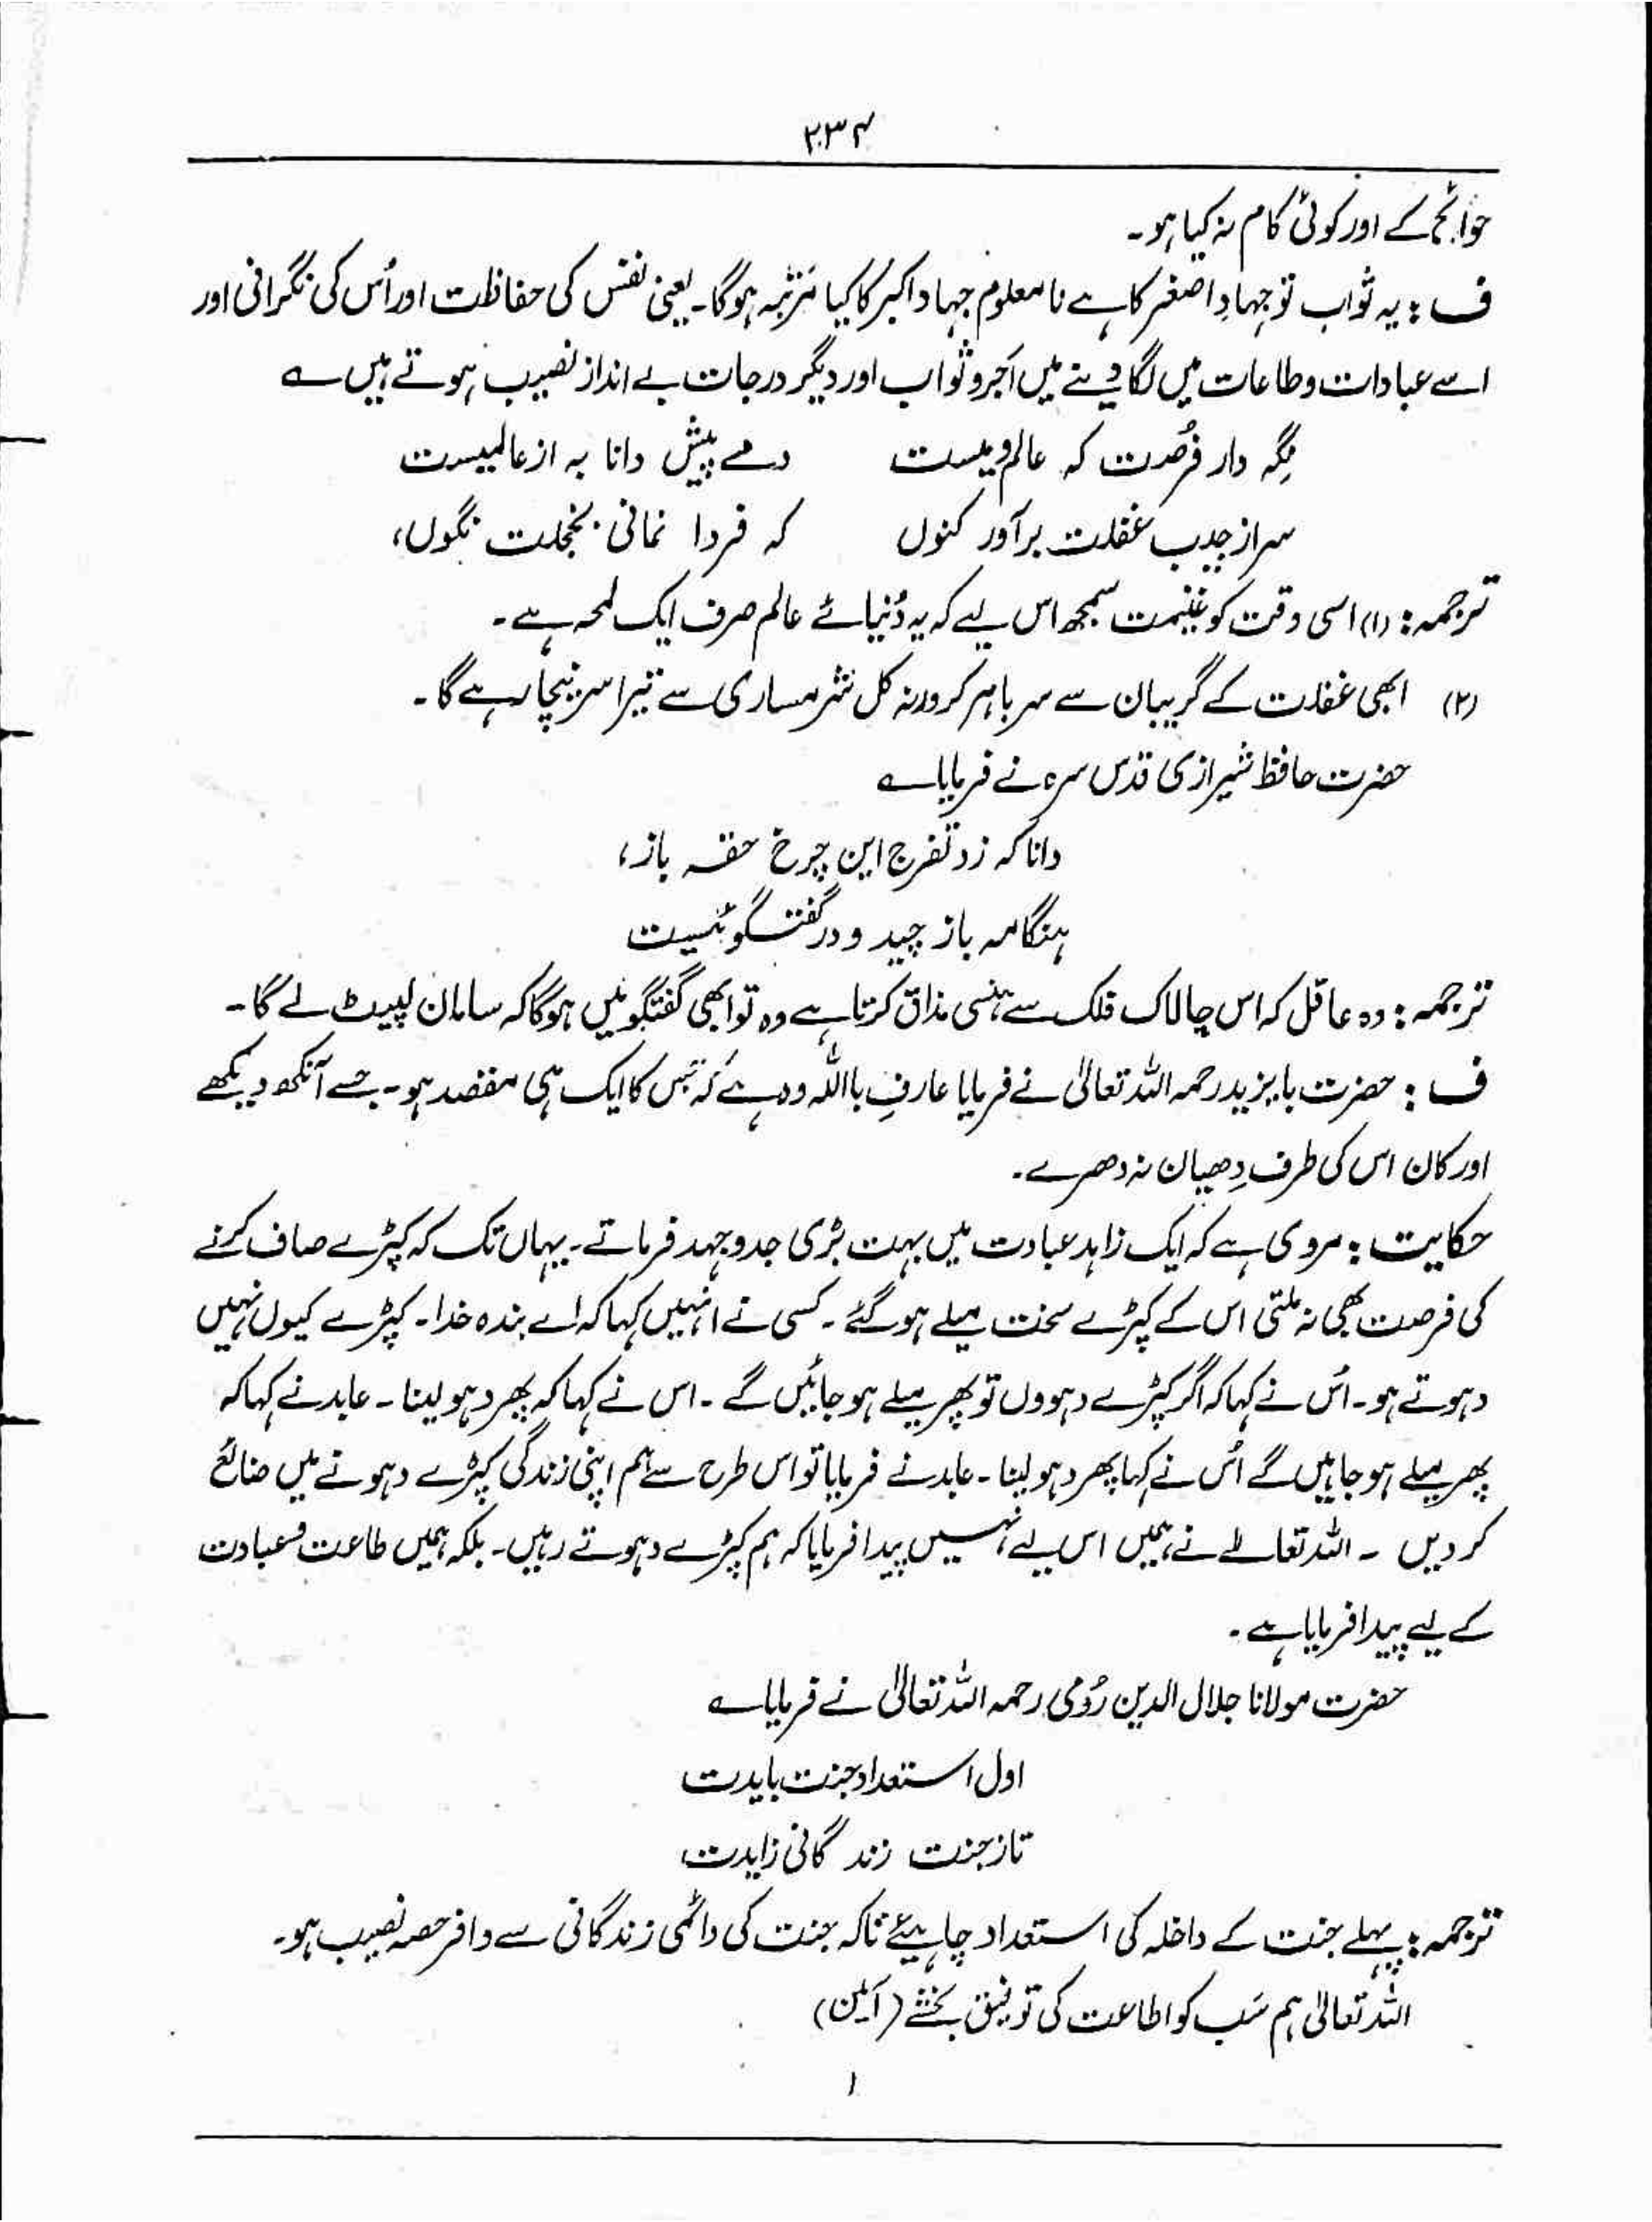 ۲۳۴
حوائج کے اور کوئی کام نہ کیا ہو۔
ف : یہ ثواب تو جہادِ اصغر کا ہے نامعلوم جہاد اکبر کا کیا مرتبہ ہوگا۔ یعنی نفس کی حفاظت اور اُس کی نگرانی اور
اسے عبادات وطاعات میں لگا دینے میں اَجر و ثواب اور دیگر درجات بے انداز نصیب ہوتے ہیں ؎
نِگہ دار فُرصت کہ عالم دمیست دمے پیش دانا بہ از عالمیست
سر از جیب غفلت برآور کنوں کہ فردا نمانی بخجلت نگوں،
ترجمہ : (۱) اسی وقت کو غنیمت سمجھ اس لیے کہ یہ دُنیائے عالم صرف ایک لمحہ ہے۔
(۲) ابھی غفلت کے گریبان سے سر باہر کر ورنہ کل شرمساری سے تیرا سر نیچا رہے گا۔
حضرت حافظ شیرازی قدس سرہ نے فرمایا ؎
دانا کہ زد تفرج این چرخ حقہ باز،
ہنگامہ باز چید و در گفتگو ئبست
ترجمہ : وہ عاقل کہ اس چالاک فلک سے ہنسی مذاق کرتا ہے وہ تو ابھی گفتگو میں ہوگا کہ سامان لپیٹ لے گا۔
ف : حضرت بایزید رحمہ اللہ تعالیٰ نے فرمایا عارفِ بااللہ وہ ہے کہ جس کا ایک ہی مقصد ہو۔ جسے آنکھ دیکھے
اور کان اس کی طرف دِھیان نہ دھرے۔
حکایت : مروی ہے کہ ایک زاہد عبادت میں بہت بڑی جدوجہد فرماتے۔ یہاں تک کہ کپڑے صاف کرنے
کی فرصت بھی نہ ملتی اس کے کپڑے سخت میلے ہوگئے۔ کسی نے انہیں کہا کہ اے بندہ خدا۔ کپڑے کیوں نہیں
دہوتے ہو۔ اُس نے کہا کہ اگر کپڑے دہووں تو پھر میلے ہو جائیں گے۔ اس نے کہا کہ پھر دہو لینا۔ عابد نے کہا کہ
پھر میلے ہو جایں گے اُس نے کہا پھر دہو لینا۔ عابد نے فرمایا تو اس طرح سے ہم اپنی زندگی کپڑے دہونے میں ضائع
کر دیں ۔ اللہ تعالےٰ نے ہمیں اس لیے نہیں پیدا فرمایا کہ ہم کپڑے دہوتے رہیں۔ بلکہ ہمیں طاعت و عبادت
کے لیے پیدا فرمایا ہے۔
حضرت مولانا جلال الدین رُومی رحمہ اللہ تعالیٰ نے فرمایا ؎
اول استعداد جنت بایدت
تاز جنت زند گانی زایدت
ترجمہ : پہلے جنت کے داخلہ کی استعداد چاہیئے تاکہ جنت کی دائمی زندگانی سے وافر حصہ نصیب ہو۔
اللہ تعالیٰ ہم سَب کو اطاعت کی توفیق بخشے (آمین)
۱